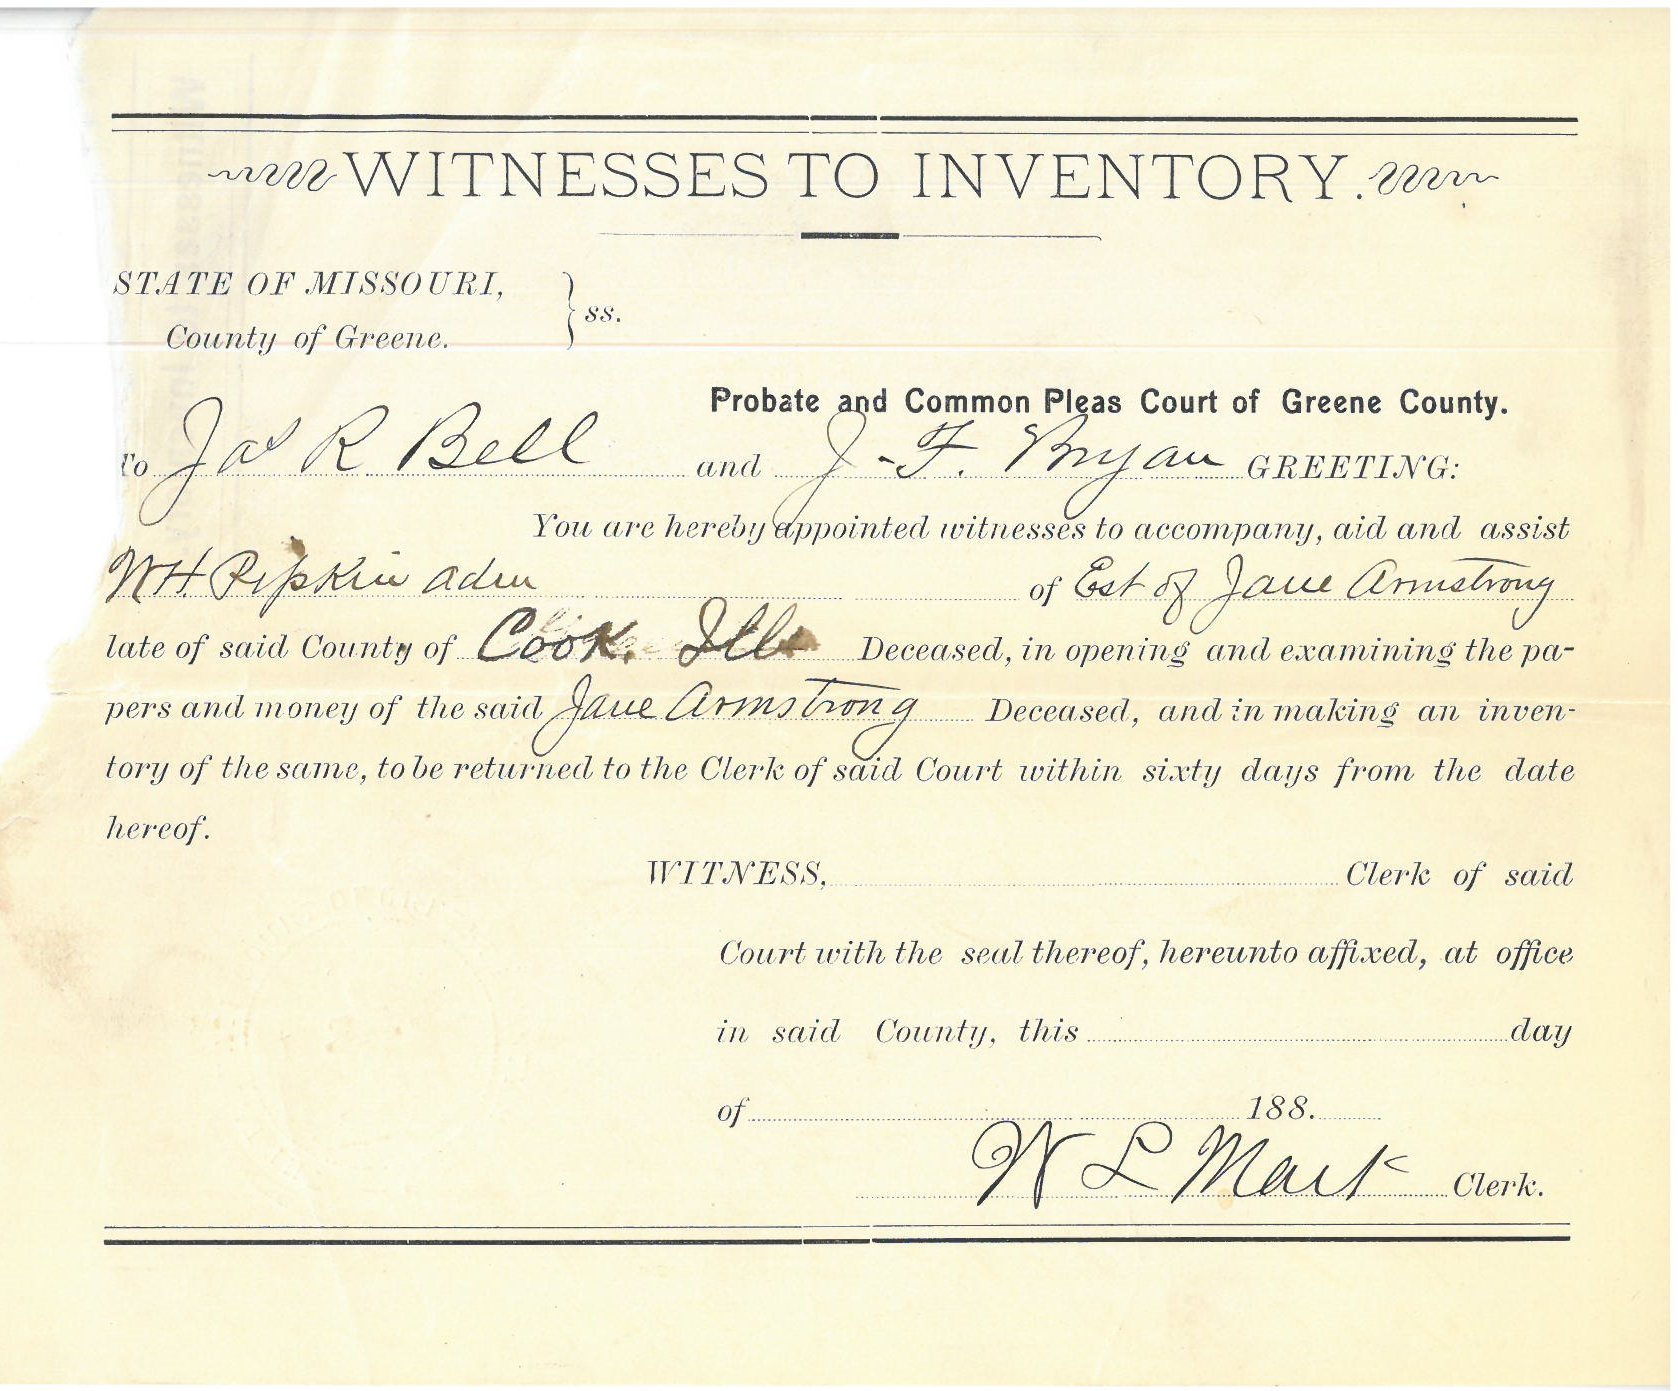 WITNESSES TO INVENTORY.
STATE OF MISSOURI,
County of Greene. } ss.
Probate and Common Pleas Court of Greene County.
To Jas R Bell and J. F. Bryan GREETING:
You are hereby appointed witnesses to accompany, aid and assist
W.H. Pipkin adm of Est of Jane Armstrong
late of said County of Cook. Ills Deceased, in opening and examining the pa-
pers and money of the said Jane Armstrong Deceased, and in making an inven-
tory of the same, to be returned to the Clerk of said Court within sixty days from the date
hereof.
WITNESS, Clerk of said
Court with the seal thereof, hereunto affixed, at office
in said County, this day
of 188.
W L Clerk.